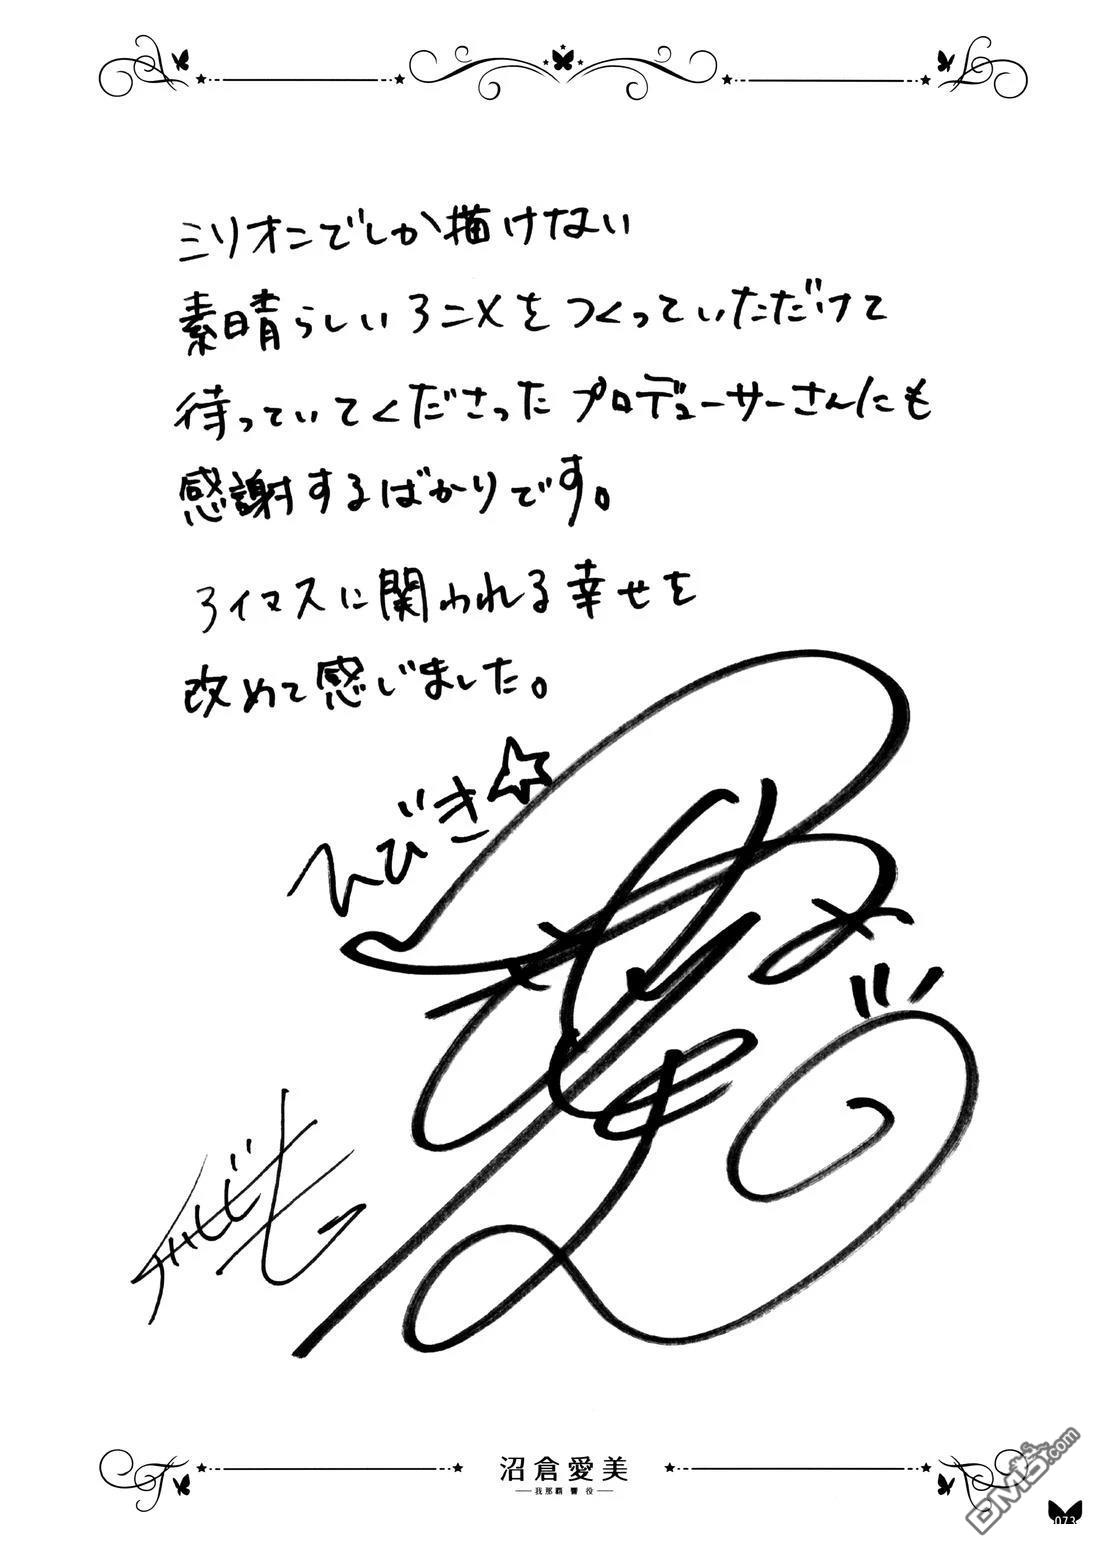 ミリオンでしか描けない
素晴らしいアニメをつくっていただけて
待っていてくださったプロデューサーさんにも
感謝するばかりです。
アイマスに関われる幸せを
改めて感じました。
ひびき
沼倉愛美
我那覇 響 役
DM5.com
073